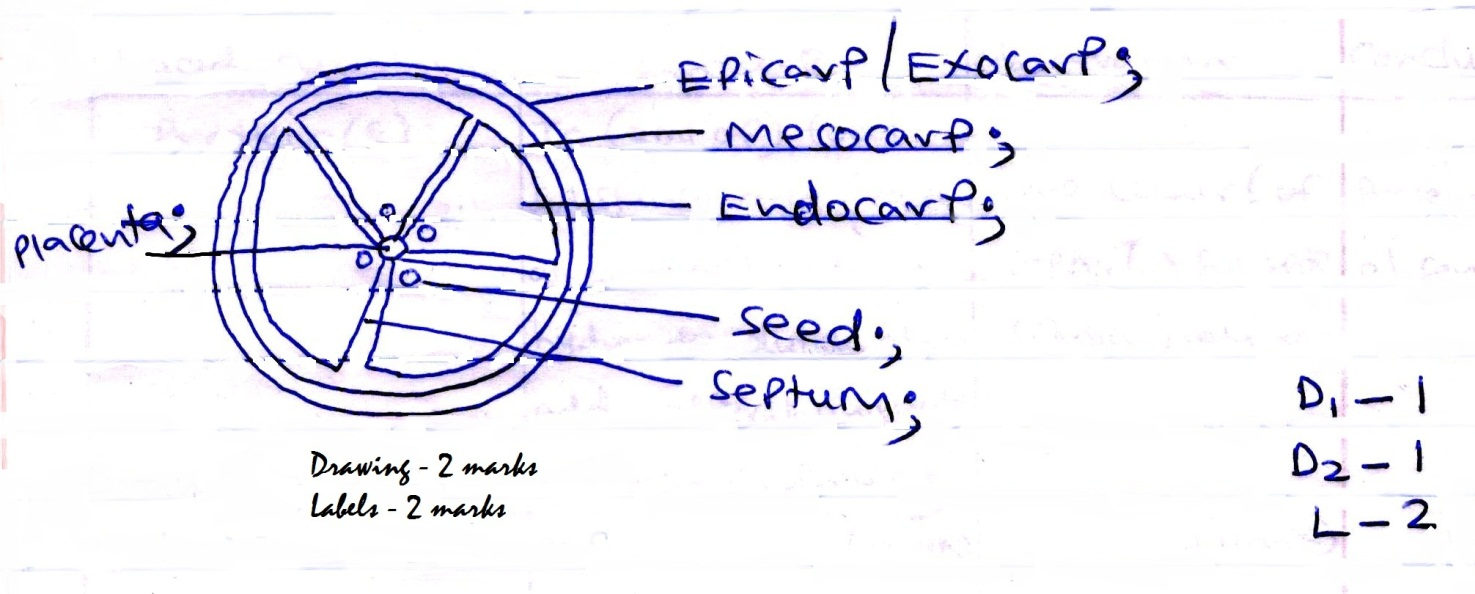 Epicarp / Exocarp;
Mesocarp;
Endocarp;
Placenta;
Seed;
Septum;
D1 - 1
Drawing - 2 marks
D2 - 1
Labels - 2 marks
L - 2